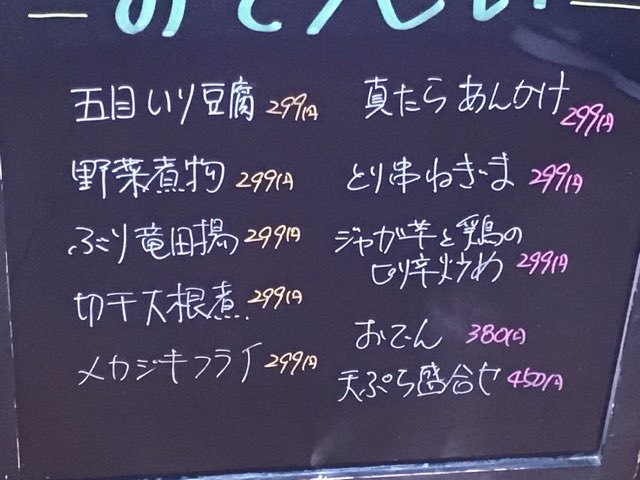 五目いり豆腐 299円
野菜煮物 299円
ぶり竜田揚 299円
切干大根煮 299円
メカジキフライ 299円
真たらあんかけ 299円
とり串ねぎま 299円
ジャガ芋と鶏の
ピリ辛炒め 299円
おでん 380円
天ぷら盛合せ 450円